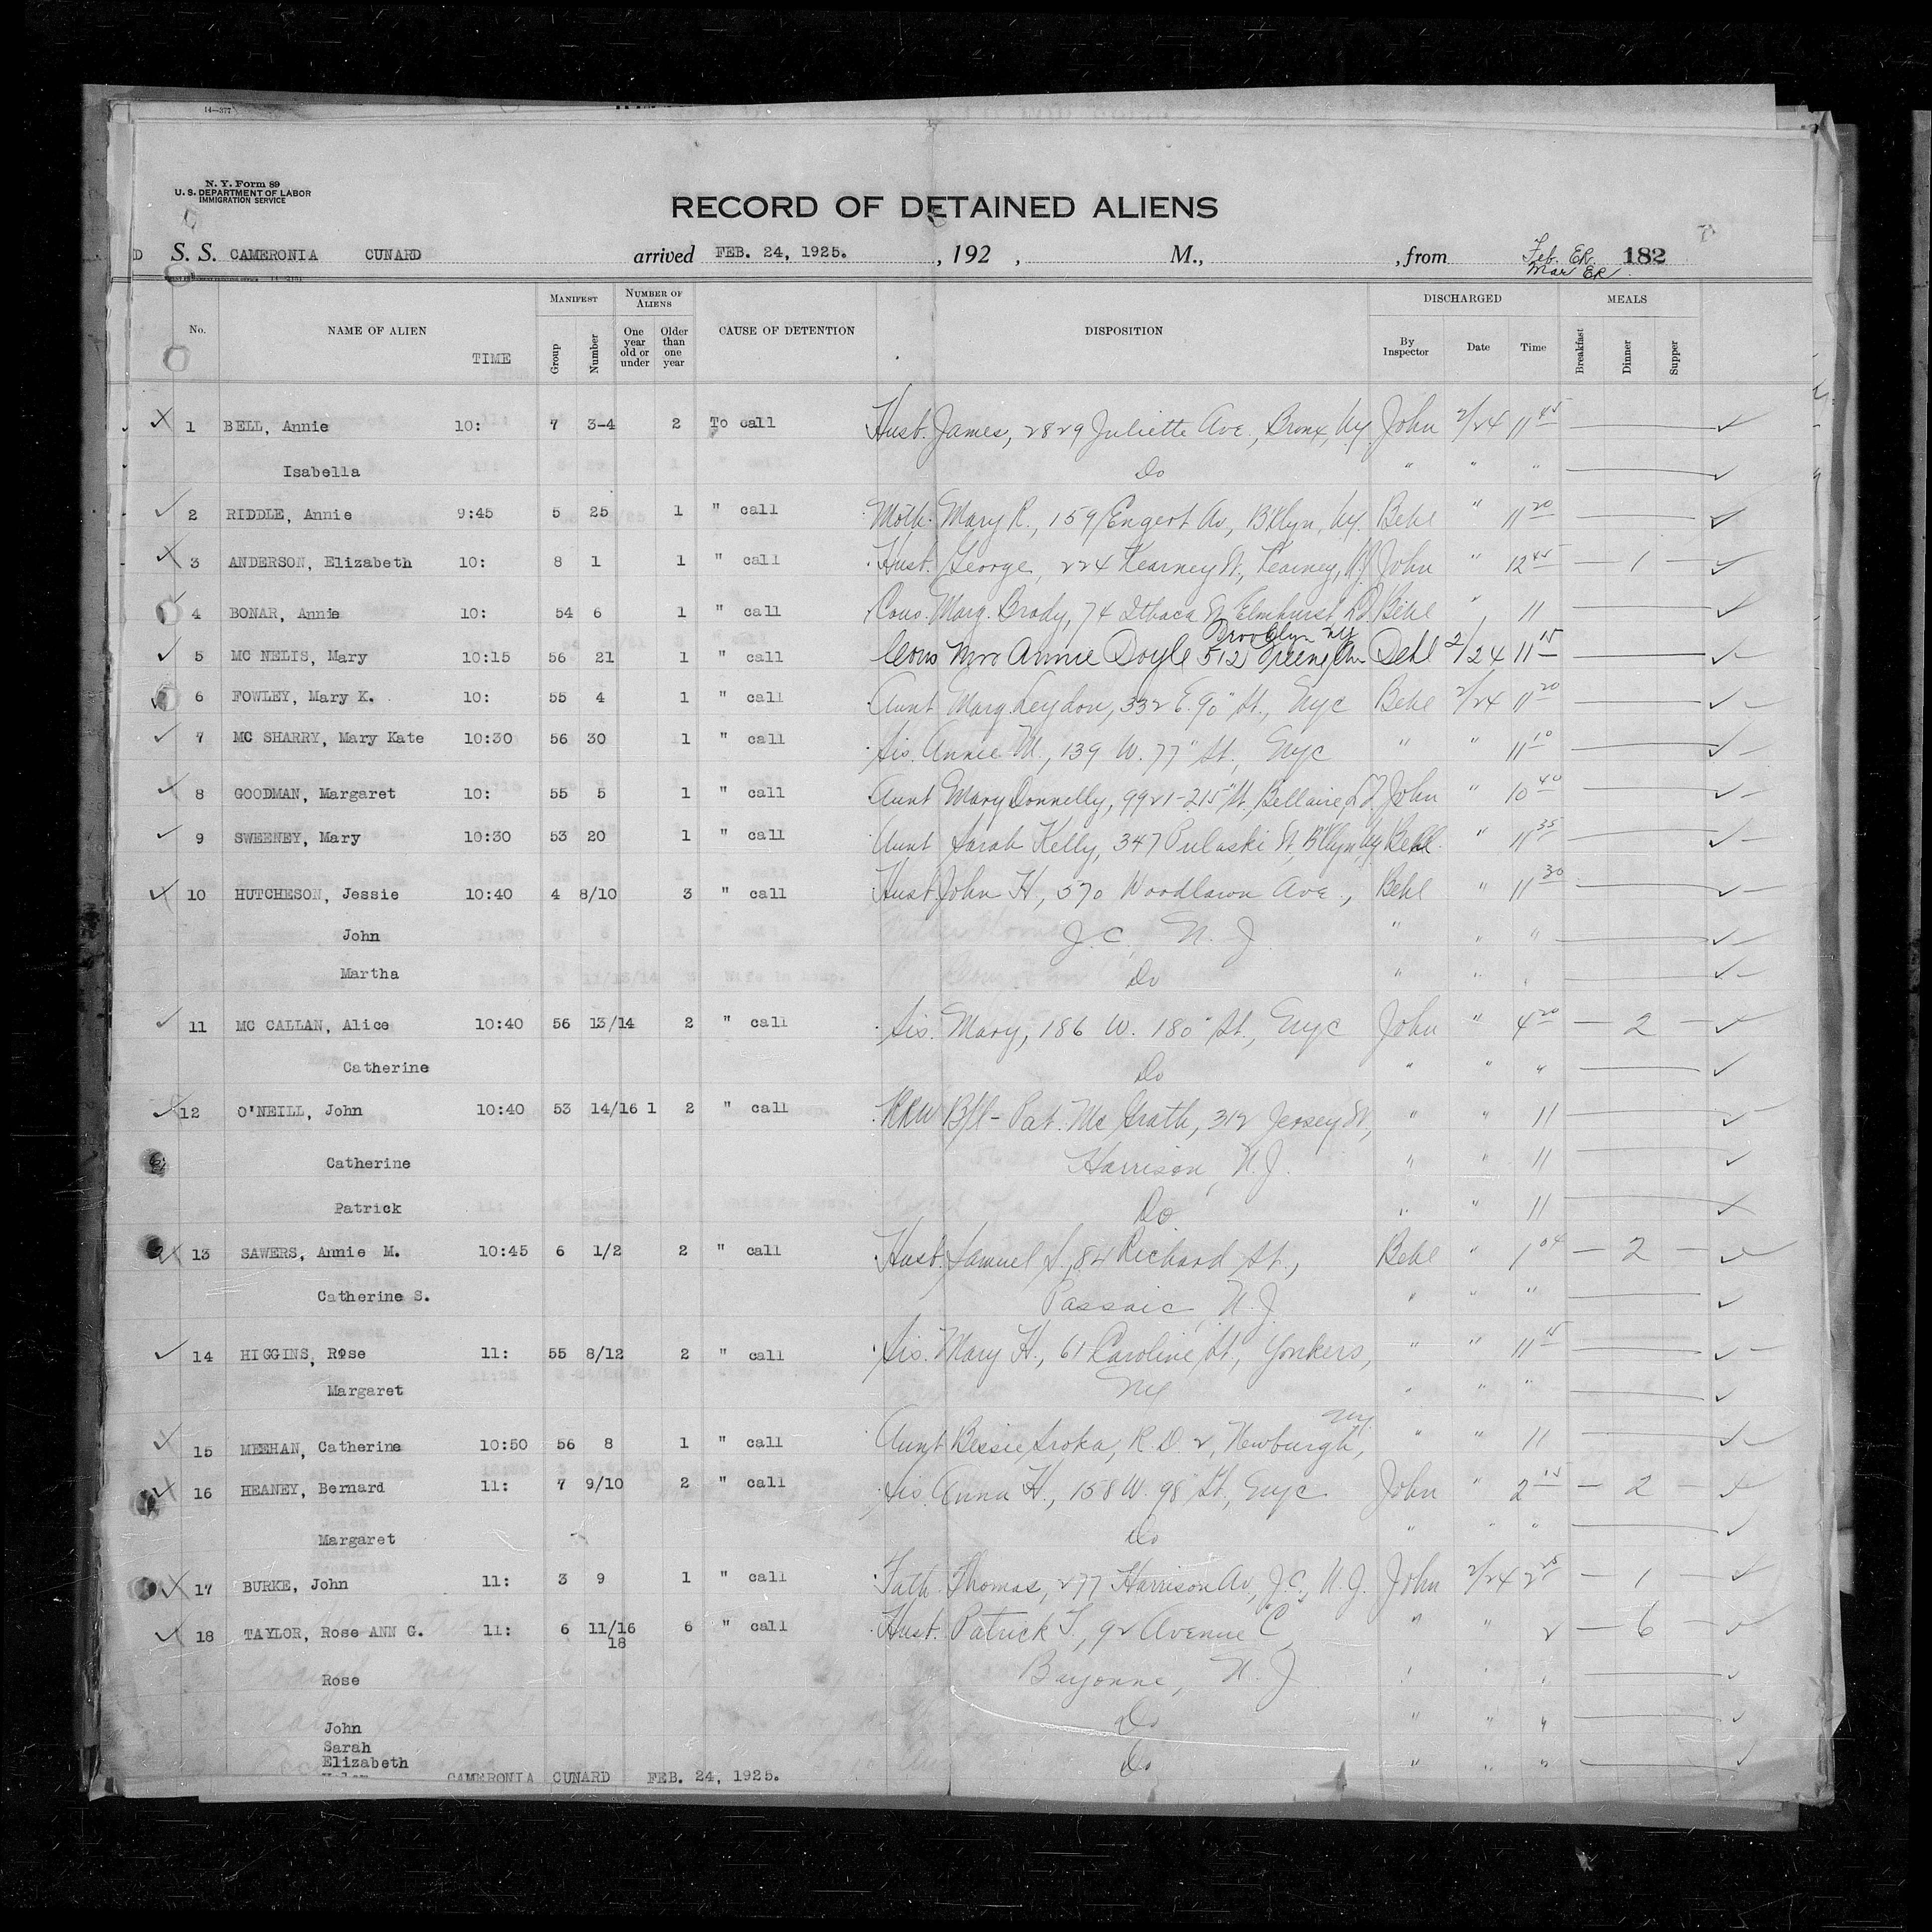 14—377
N. Y. Form 89
U. S. DEPARTMENT OF LABOR
IMMIGRATION SERVICE
RECORD OF DETAINED ALIENS
D S. S. CAMERONIA CUNARD arrived FEB. 24, 1925. , 192 , M., , from Feb. ER. 182
Mar ER
No. NAME OF ALIEN TIME MANIFEST Group Number NUMBER OF ALIENS One year old or under Older than one year CAUSE OF DETENTION DISPOSITION DISCHARGED By Inspector Date Time MEALS Breakfast Dinner Supper
1 BELL, Annie 10: 7 3-4 2 To call Husb. James, 2829 Juliette Ave., Bronx, Ny. John 2/24 11 45
Isabella Do " " "
2 RIDDLE, Annie 9:45 5 25 1 " call Moth. Mary R., 159 Engert Av, B'klyn, Ny. Behl " 11 20
3 ANDERSON, Elizabeth 10: 8 1 1 " call Husb. George, 224 Kearney St., Kearney, N.J. John " 12 45 — 1 —
4 BONAR, Annie 10: 54 6 1 " call Cous. Marg. Brady, 74 Ithaca St. Elmhurst, L.I. Behl " 11
Brooklyn Ny
5 MC NELIS, Mary 10:15 56 21 1 " call Cous Mrs Annie Doyle 512 Greene Ave Behl 2/24 11 15
6 FOWLEY, Mary K. 10: 55 4 1 " call Aunt Marg. Leydon, 332 E. 90" St., Nyc Behl 2/24 11 20
7 MC SHARRY, Mary Kate 10:30 56 30 1 " call Sis. Annie M., 139 W. 77" St., Nyc " " 11 10
8 GOODMAN, Margaret 10: 55 5 1 " call Aunt Mary Donnelly, 9921-215" St, Bellaire, L.I. John " 10 40
9 SWEENEY, Mary 10:30 53 20 1 " call Aunt Sarah Kelly, 347 Pulaski St, B'klyn, Ny Behl " 11 35
10 HUTCHESON, Jessie 10:40 4 8/10 3 " call Husb John H., 570 Woodlawn Ave., Behl " 11 30
John J.C., N.J. " " "
Martha Do " " "
11 MC CALLAN, Alice 10:40 56 13/14 2 " call Sis. Mary, 186 W. 180" St., Nyc John " 4 20 — 2 —
Catherine Do " " "
12 O'NEILL, John 10:40 53 14/16 1 2 " call B/l - Pat. McGrath, 312 Jersey St, " " 11
Catherine Harrison, N.J. " " 11
Patrick Do " " 11
13 SAWERS, Annie M. 10:45 6 1/2 2 " call Husb. Samuel S., 84 Richard St., Behl " 1 04 — 2 —
Catherine S. Passaic, N.J. " " "
14 HIGGINS, Rose 11: 55 8/12 2 " call Sis. Mary H., 61 Caroline St., Yonkers, " " 11 15
Margaret Ny " " "
Ny.
15 MEEHAN, Catherine 10:50 56 8 1 " call Aunt Bessie Sroka, R.D. 2, Newburgh, " " 11
16 HEANEY, Bernard 11: 7 9/10 2 " call Sis. Anna H., 158 W. 98" St., Nyc John " 2 15 — 2 —
Margaret Do " " "
17 BURKE, John 11: 3 9 1 " call Fath. Thomas, 277 Harrison Av., J.C., N.J. John 2/24 2 25 — 1 —
18 TAYLOR, Rose ANN G. 11: 6 11/16 6 " call Husb. Patrick T., 92 Avenue "C" " " 2 — 6 —
18
Rose Bayonne, N.J. " " "
John Do " " "
Sarah
Elizabeth Do " " "
CAMERONIA CUNARD FEB. 24, 1925.